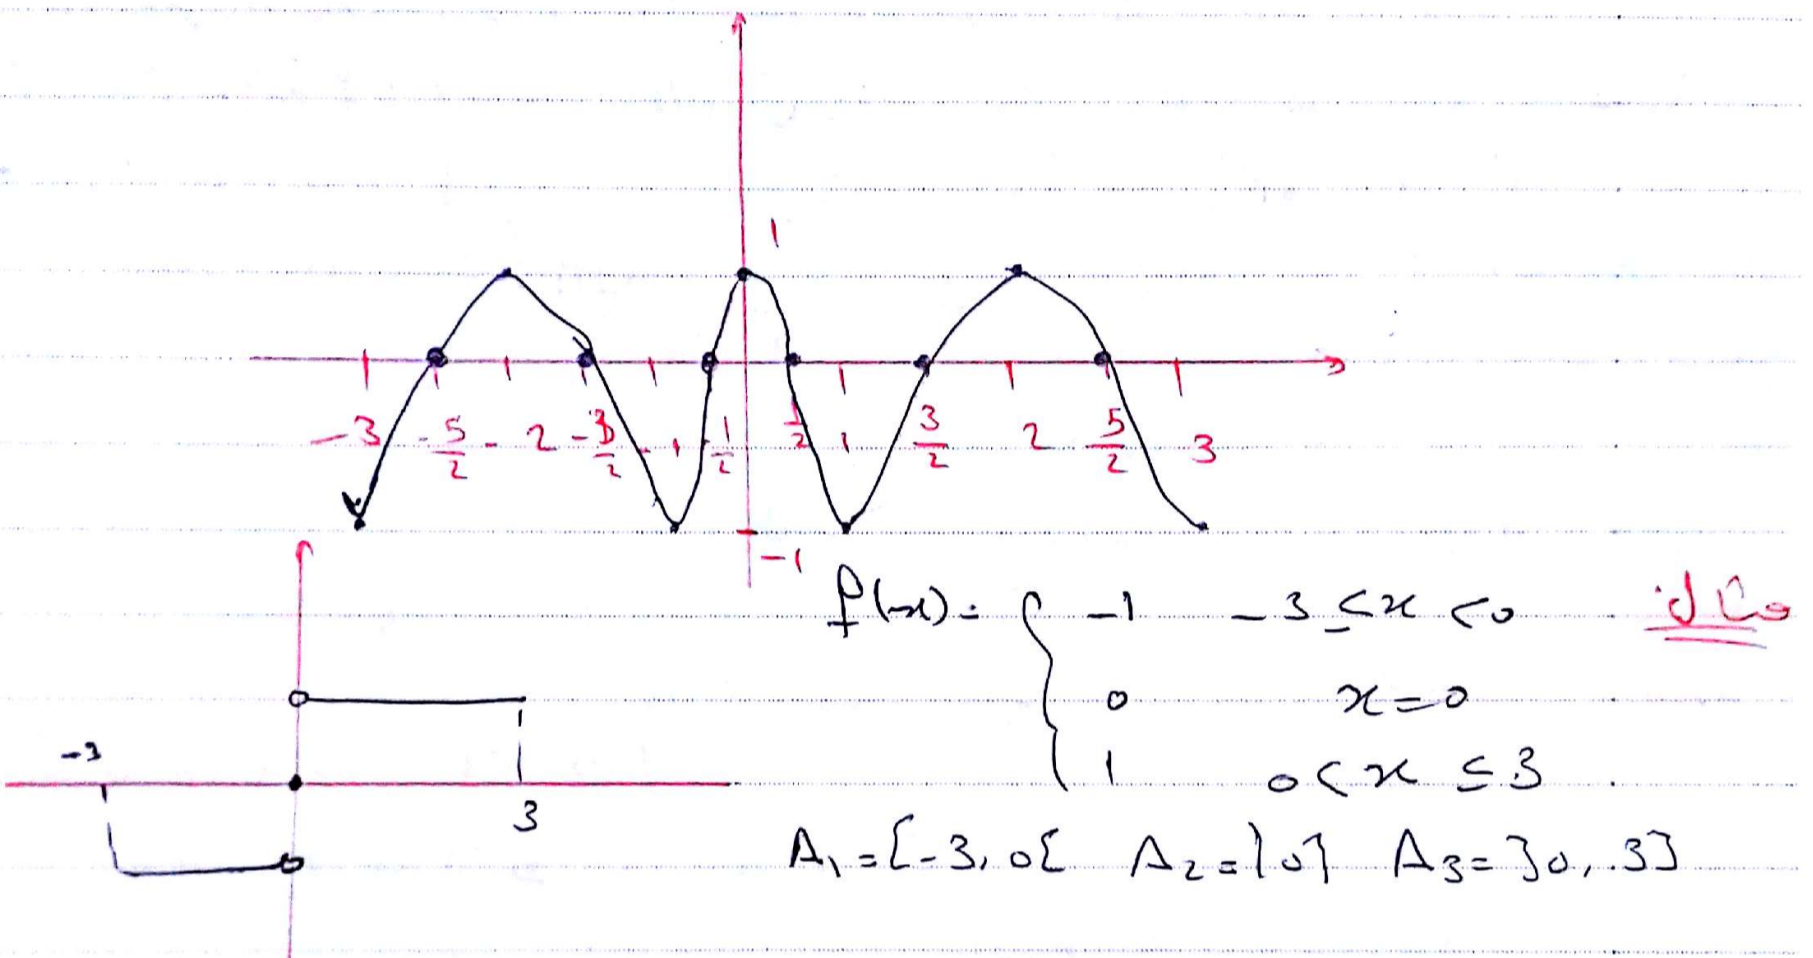 1
-3 -5/2 -2 -3/2 -1 -1/2 1/2 1 3/2 2 5/2 3
-1
مثال:
f(x) = { -1 -3 ≤ x < 0
0 x = 0
1 0 < x ≤ 3
-3
3
A₁ = [-3, 0[ A₂ = {0} A₃ = ]0, 3]